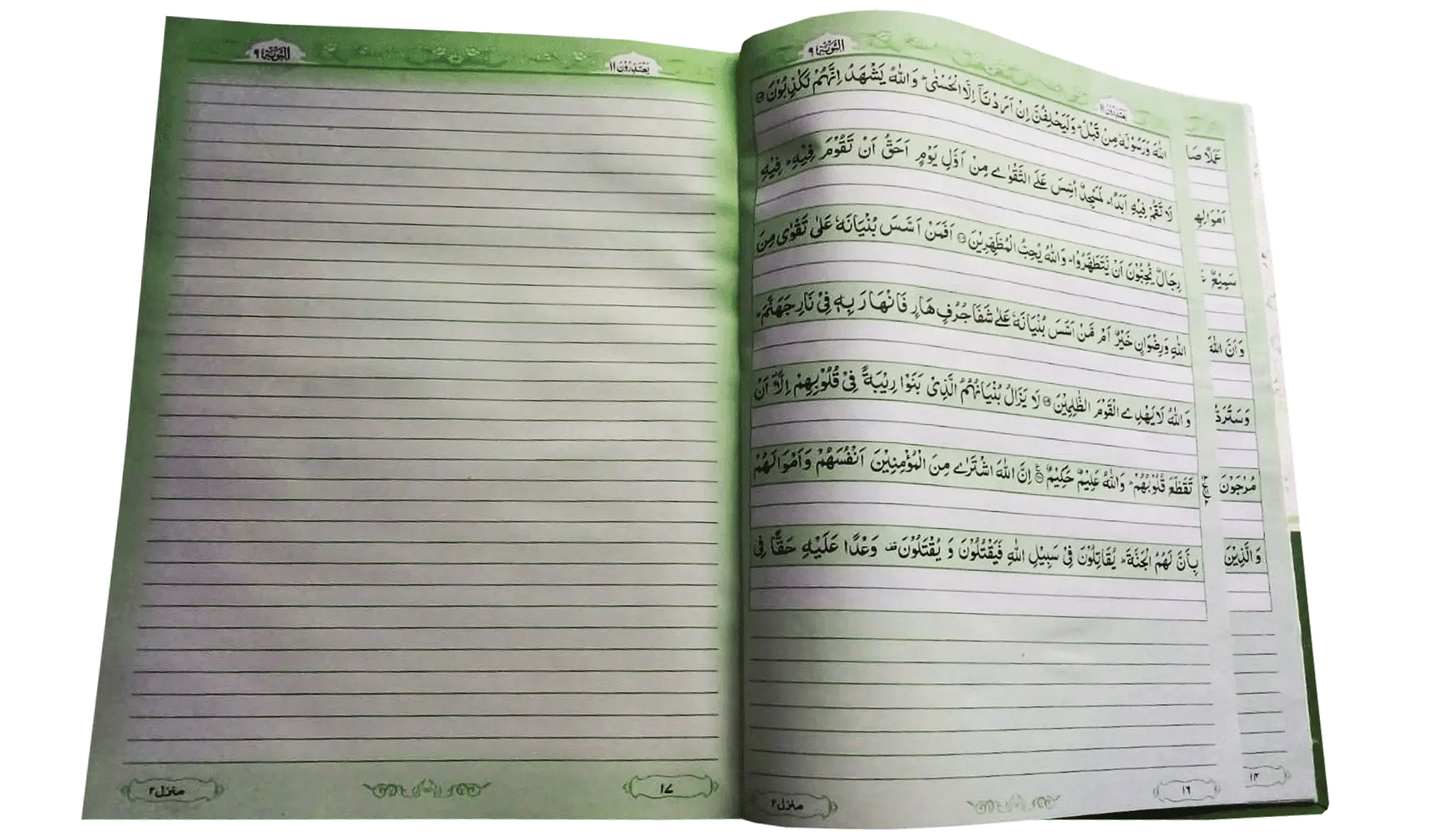 يَعْتَذِرُوْنَ ١١
التَّوْبَة ٩
اللهَ وَرَسُوْلَهٗ مِنْ قَبْلُ ؕ وَلَيَحْلِفُنَّ اِنْ اَرَدْنَاۤ اِلَّا الْحُسْنٰى ؕ وَاللهُ يَشْهَدُ اِنَّهُمْ لَكٰذِبُوْنَ
لَا تَقُمْ فِيْهِ اَبَدًا ؕ لَمَسْجِدٌ اُسِّسَ عَلَى التَّقْوٰى مِنْ اَوَّلِ يَوْمٍ اَحَقُّ اَنْ تَقُوْمَ فِيْهِ ؕ فِيْهِ
رِجَالٌ يُّحِبُّوْنَ اَنْ يَّتَطَهَّرُوْا ؕ وَاللهُ يُحِبُّ الْمُطَّهِّرِيْنَ اَفَمَنْ اَسَّسَ بُنْيَانَهٗ عَلٰى تَقْوٰى مِنَ
اللهِ وَرِضْوَانٍ خَيْرٌ اَمْ مَّنْ اَسَّسَ بُنْيَانَهٗ عَلٰى شَفَا جُرُفٍ هَارٍ فَانْهَارَ بِهٖ فِيْ نَارِ جَهَنَّمَ ؕ
وَاللهُ لَا يَهْدِى الْقَوْمَ الظّٰلِمِيْنَ لَا يَزَالُ بُنْيَانُهُمُ الَّذِيْ بَنَوْا رِيْبَةً فِيْ قُلُوْبِهِمْ اِلَّاۤ اَنْ
تَقَطَّعَ قُلُوْبُهُمْ ؕ وَاللهُ عَلِيْمٌ حَكِيْمٌ اِنَّ اللهَ اشْتَرٰى مِنَ الْمُؤْمِنِيْنَ اَنْفُسَهُمْ وَاَمْوَالَهُمْ
بِاَنَّ لَهُمُ الْجَنَّةَ ؕ يُقَاتِلُوْنَ فِيْ سَبِيْلِ اللهِ فَيَقْتُلُوْنَ وَ يُقْتَلُوْنَ وَعْدًا عَلَيْهِ حَقًّا فِى
١٦
منزل ٢
يَعْتَذِرُوْنَ ١١
التَّوْبَة ٩
١٧
منزل ٢
عَمَلًا صَا
اَمْوَالِهِ
سَمِيْعٌ
وَاَنَّ اللهَ
وَسَتُرَدُّ
مُرْجَوْنَ
وَالَّذِيْنَ
١٤